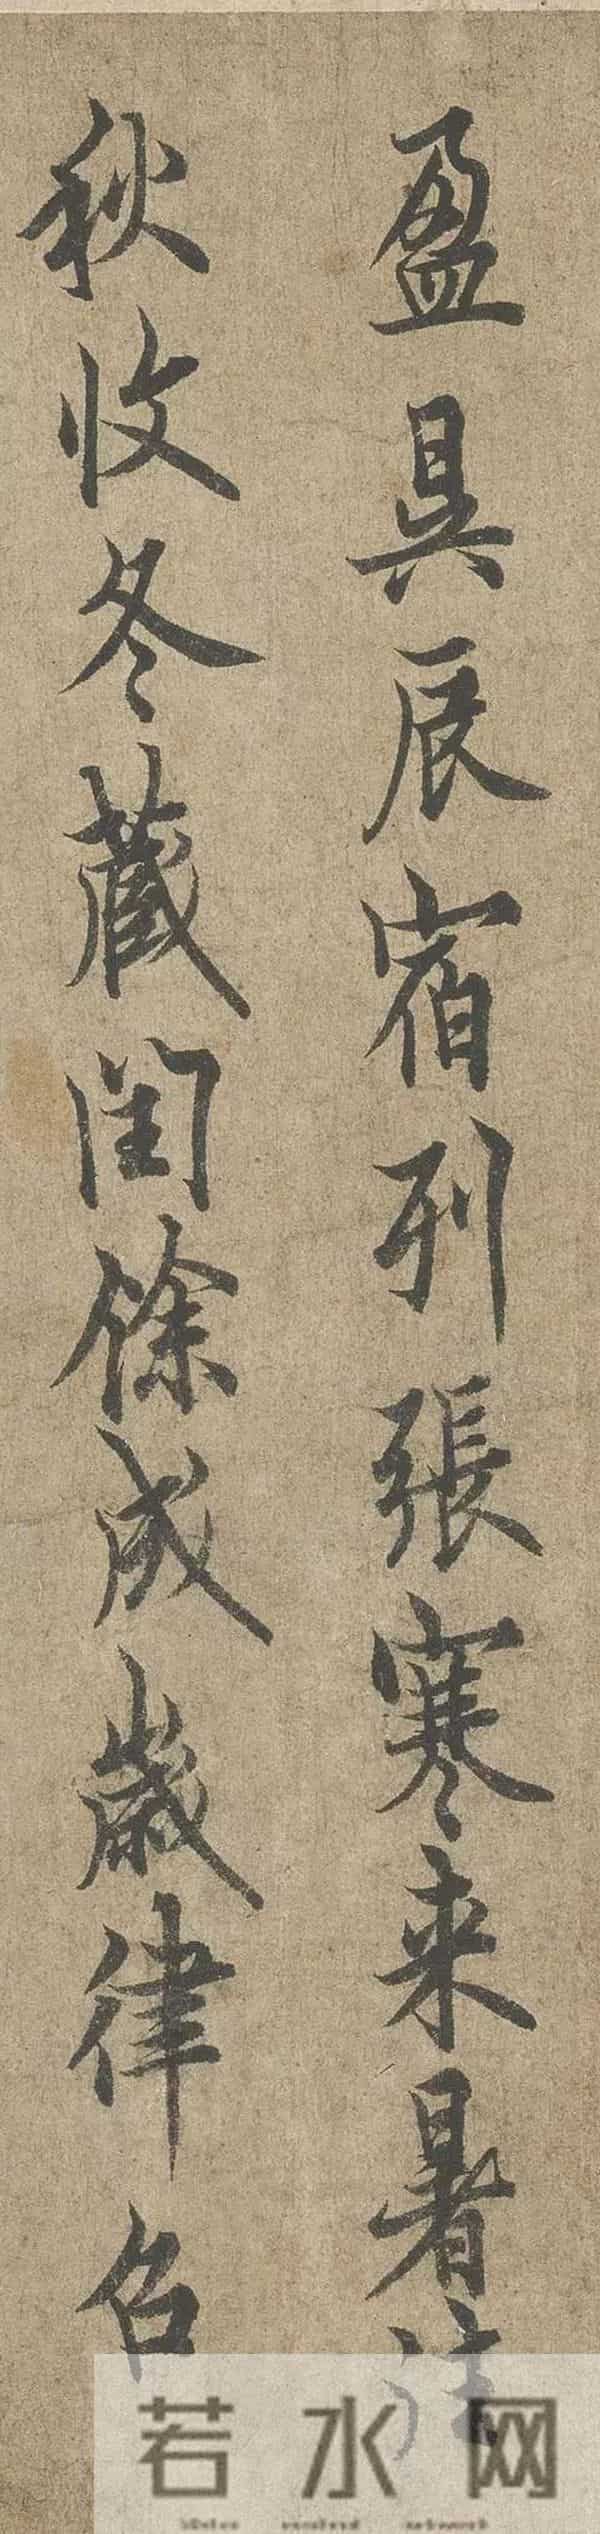 盈昃辰宿列張寒来暑往
秋收冬藏閏餘成歲律召
若水网